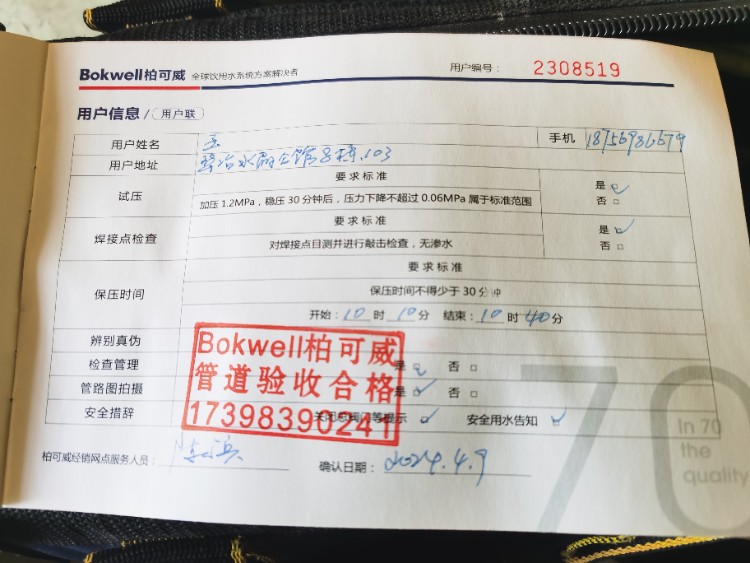 Bokwell柏可威 全球饮用水系统方案解决者 用户编号: 2308519
用户信息 / 用户联
用户姓名 王 手机 18756986579
用户地址 水府公馆8栋.103
要求标准
试压 加压1.2MPa，稳压30分钟后，压力下降不超过0.06MPa属于标准范围 是 ☑ 否 □
要求标准
焊接点检查 对焊接点目测并进行敲击检查，无渗水 是 ☑ 否 □
要求标准
保压时间 保压时间不得少于30分钟
开始: 10 时 10 分 结束: 10 时 40 分
辨别真伪
检查管理 是 ☑ 否 □
管路图拍摄 是 ☑ 否 □
安全措辞 关闭总阀门等提示 ☑ 安全用水告知 ☑
Bokwell柏可威
管道验收合格
17398390241
柏可威经销网点服务人员: 确认日期: 2024.4.9
70
In 70
the
quality